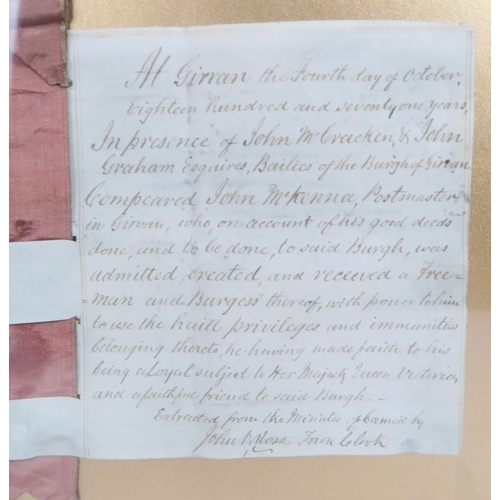 At Girvan the Fourth day of October,
Eighteen hundred and seventy one years,
In presence of John McCracken, & John
Graham Esquires, Bailies of the Burgh of Girvan
Compeared John McKenna, Postmaster
in Girvan, who, on account of his good deeds
done, and to be done, to said Burgh, was
admitted, created, and received a Free=
=man and Burgess thereof, with power to him
to use the haill privileges and immunities
belonging thereto, he having made faith to his
being a Loyal subject to Her Majesty Queen Victoria,
and a faithful friend to said Burgh. —
Extracted from the Minutes by
John Town Clerk